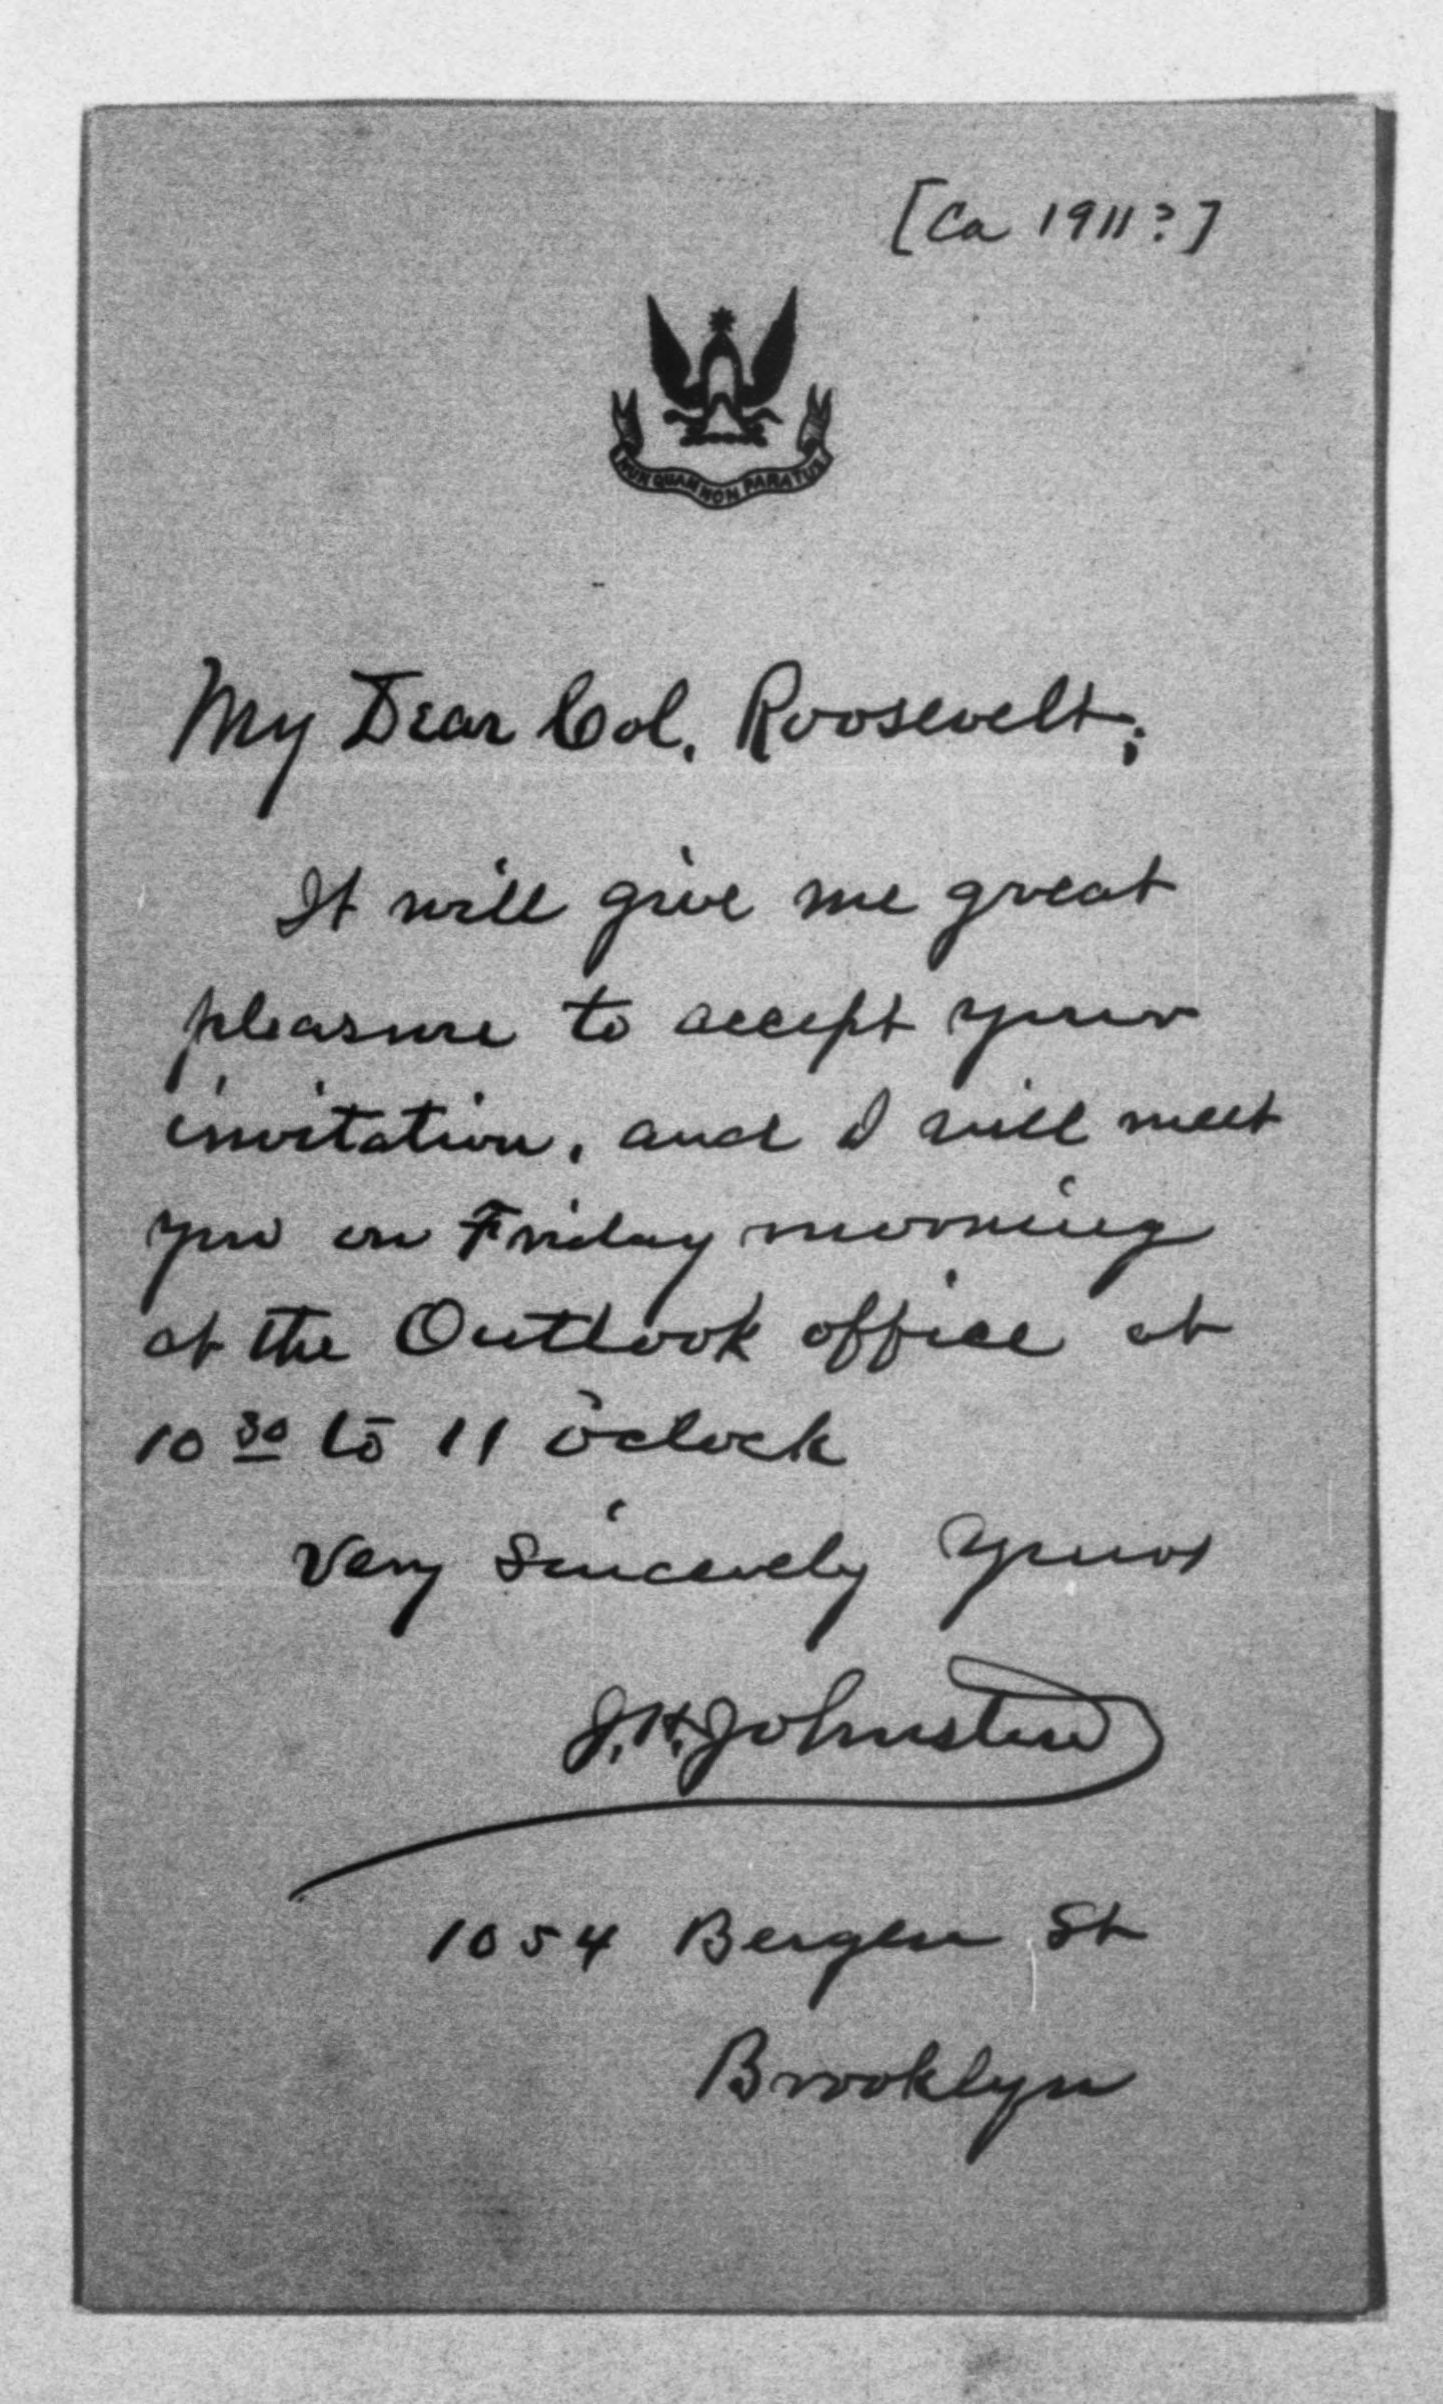 [Ca 1911?]
NUNQUAM NON PARATUS
My Dear Col. Roosevelt;
It will give me great
pleasure to accept your
invitation, and I will meet
you on Friday morning
at the Outlook office at
10 30 to 11 o'clock
Very Sincerely Yours
J. H. Johnston
1054 Bergen St
Brooklyn